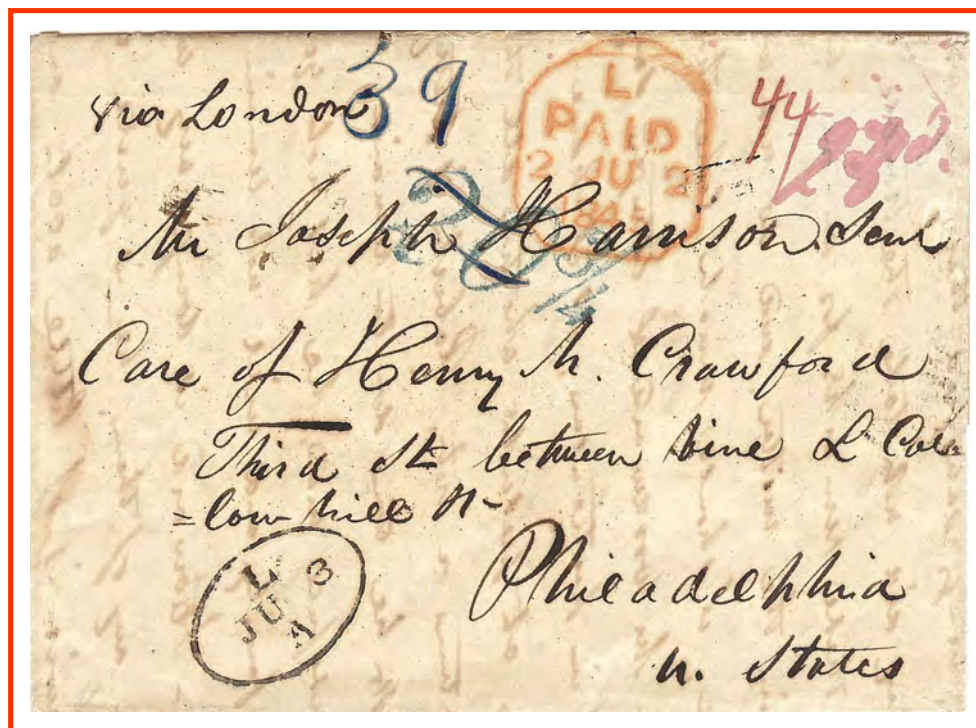 via London
39
L
PAID
2 JU 2
1845
44
Mr Joseph Harrison Senr
Care of Henry M. Crawford
Third St between Vine & Cal
=low hill St
L
JU 3
A
Philadelphia
U. States